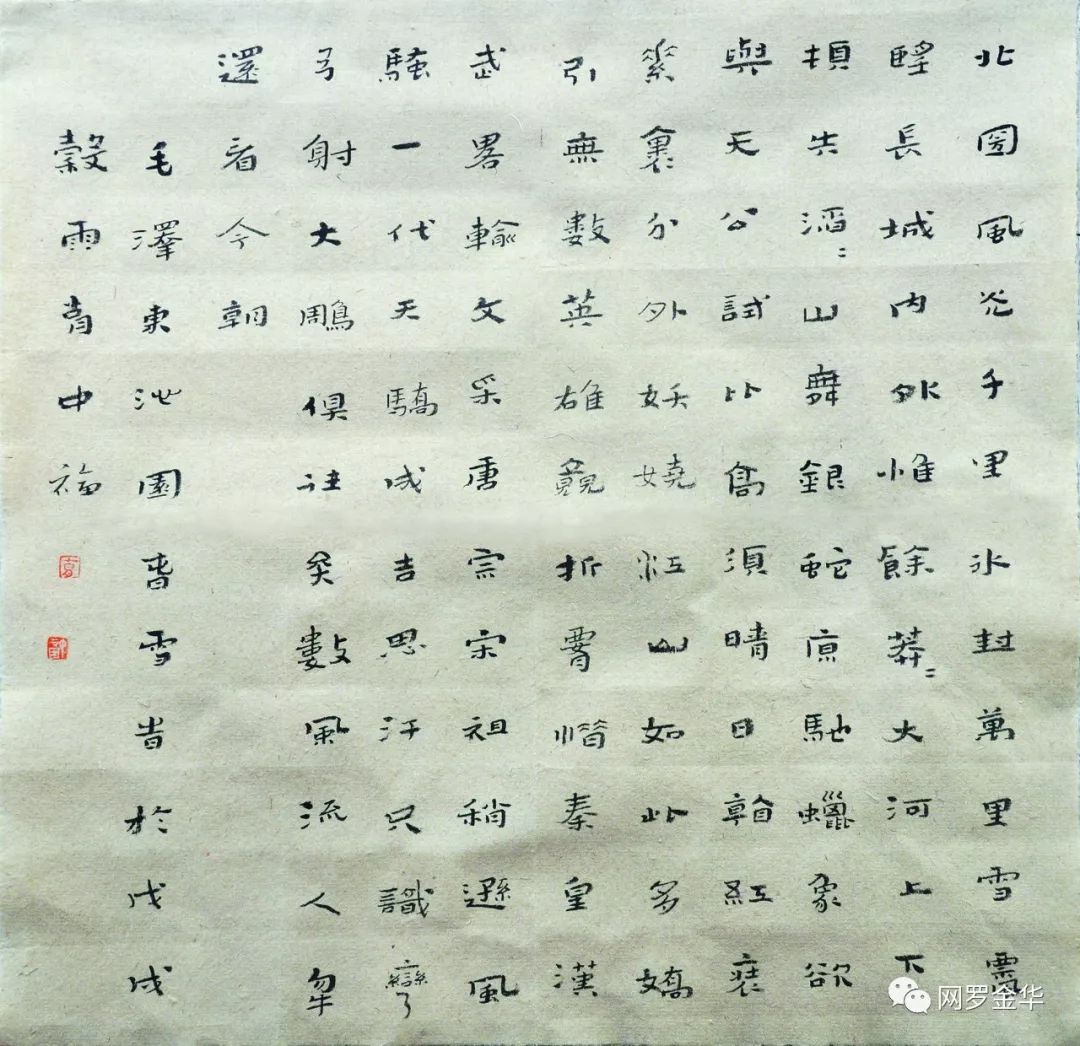 北國風光千里冰封萬里雪飄
望長城內外惟餘莽〻大河上下
頓失滔〻山舞銀蛇原馳蠟象欲
與天公試比高須晴日看紅裝
素裹分外妖嬈江山如此多嬌
引無數英雄競折腰惜秦皇漢
武畧輸文采唐宗宋祖稍遜風
騷一代天驕成吉思汗只識彎
弓射大鵰俱往矣數風流人物
還看今朝
毛澤東沁園春雪書於戊戌
穀雨中福
网罗金华